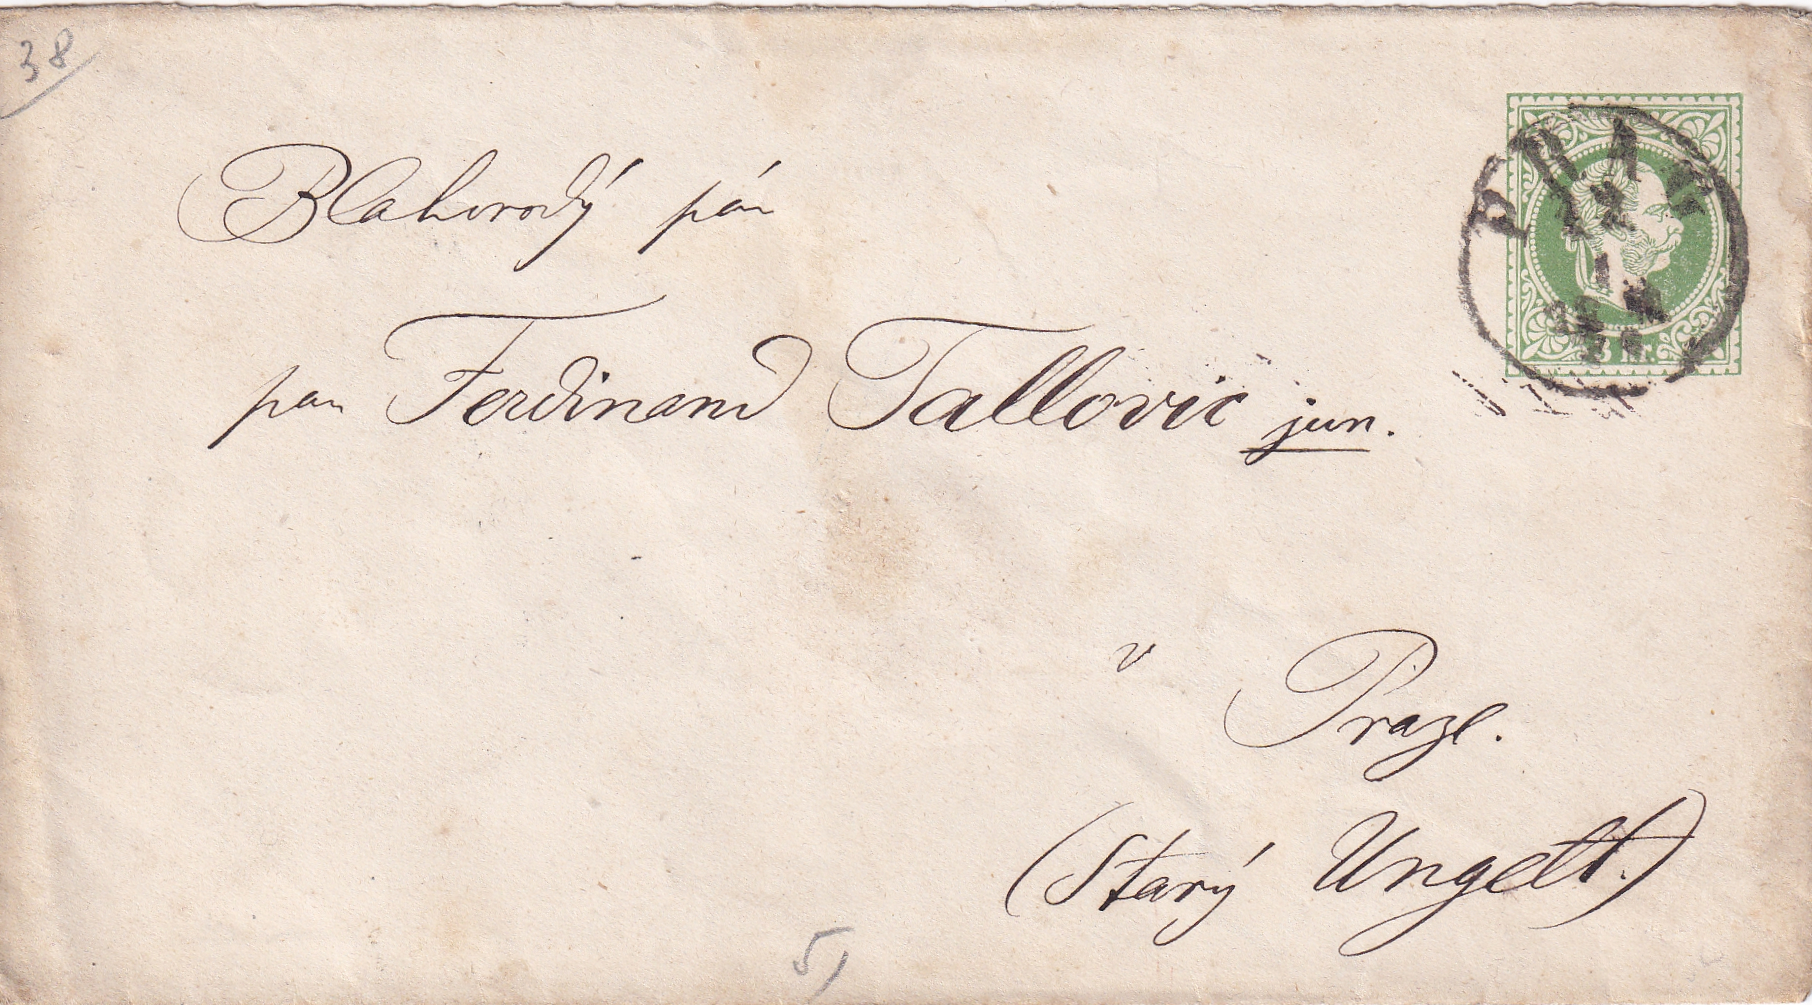 38
Blahorodý pán
pan Ferdinand Tallovic jun.
v Praze.
(Starý Ungelt.)
5)
PRAG